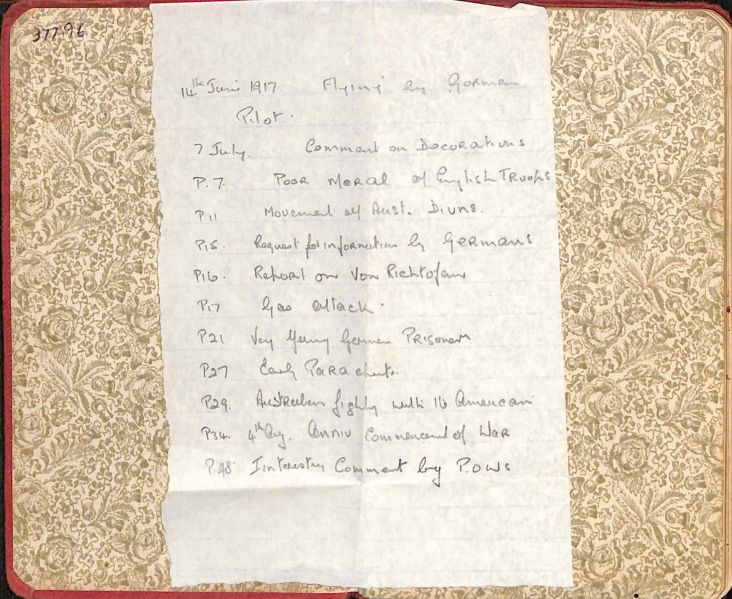 37796
14th June 1917. Flying by German
Pilot.
7 July. Comment on Decorations
P.7. Poor Moral of English Troops
P11 Movement of Aust. Divns.
P15. Request for information by Germans
P16. Report on Von Richtofen
P17 Gas attack.
P21 Very Young German Prisoners
P27 Early Parachute.
P29. Australian fighting with 16 American
P34. 4th Aug. Anniv Commencement of War
P48 Interesting Comment by P.O.W.s